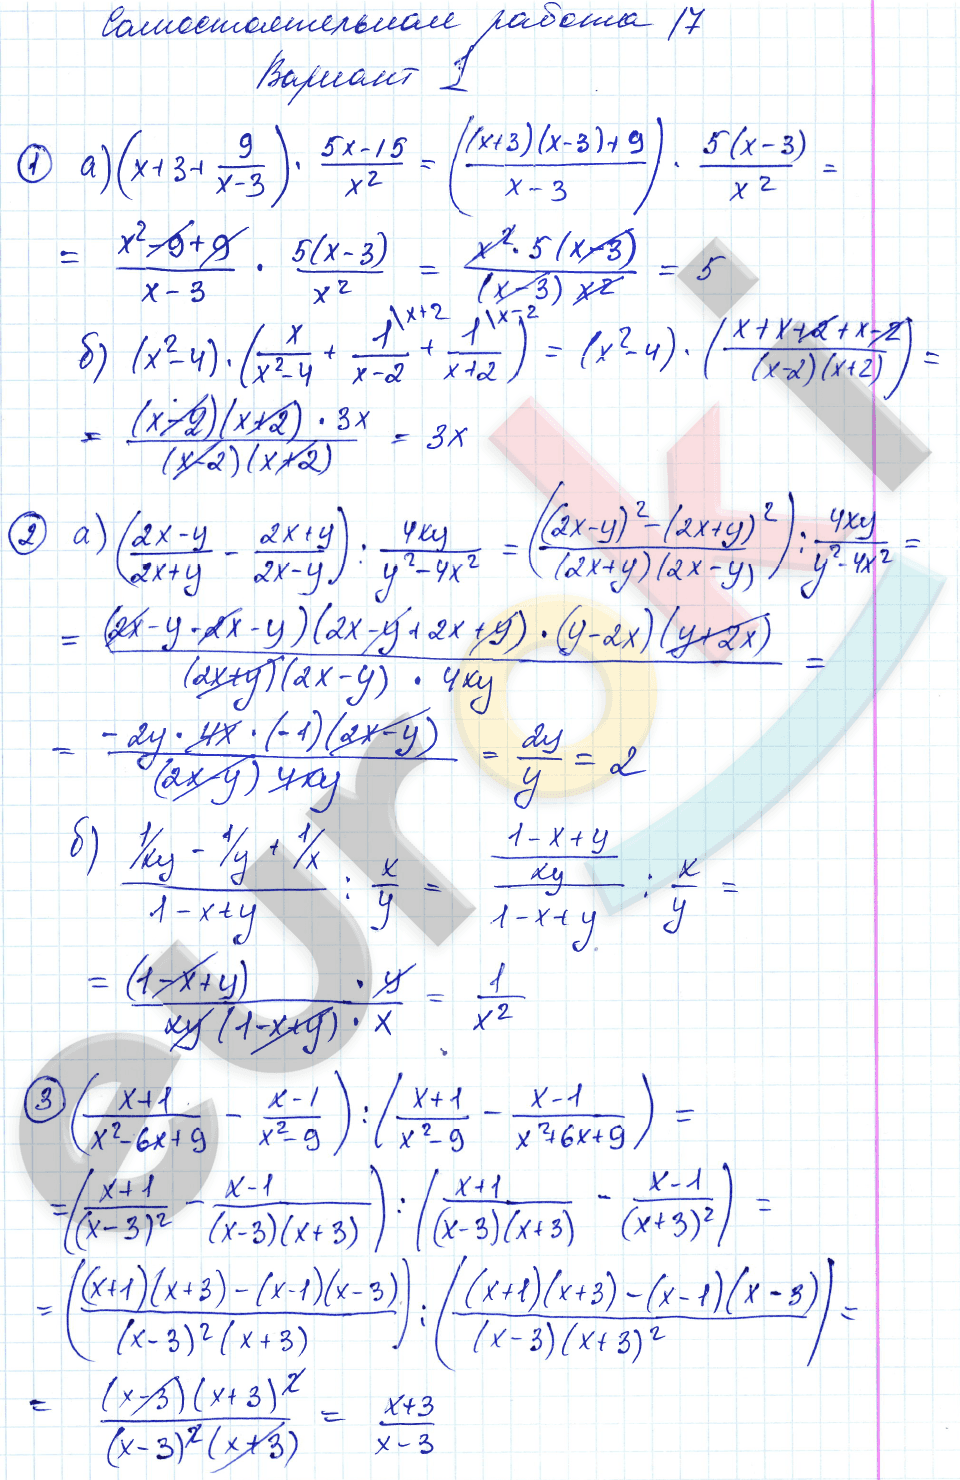 Самостоятельная работа 17
Вариант 1
① а) (x+3+9/(x-3)) · (5x-15)/x² = (((x+3)(x-3)+9)/(x-3)) · 5(x-3)/x² =
= (x²-9+9)/(x-3) · 5(x-3)/x² = (x²·5(x-3))/((x-3)x²) = 5
б) (x²-4)·(x/(x²-4) + 1\x+2/(x-2) + 1\x-2/(x+2)) = (x²-4)·((x+x+2+x-2)/((x-2)(x+2))) =
= ((x-2)(x+2)·3x)/((x-2)(x+2)) = 3x
② а) ((2x-y)/(2x+y) - (2x+y)/(2x-y)) : 4xy/(y²-4x²) = (((2x-y)²-(2x+y)²)/((2x+y)(2x-y))) : 4xy/(y²-4x²) =
= ((2x-y-2x-y)(2x-y+2x+y)·(y-2x)(y+2x))/((2x+y)(2x-y)·4xy) =
= (-2y·4x·(-1)(2x-y))/((2x-y)4xy) = 2y/y = 2
б) (1/xy - 1/y + 1/x)/(1-x+y) : x/y = ((1-x+y)/xy)/(1-x+y) : x/y =
= ((1-x+y)·y)/(xy(1-x+y)·x) = 1/x²
③ ((x+1)/(x²-6x+9) - (x-1)/(x²-9)) : ((x+1)/(x²-9) - (x-1)/(x²+6x+9)) =
= ((x+1)/(x-3)² - (x-1)/((x-3)(x+3))) : ((x+1)/((x-3)(x+3)) - (x-1)/(x+3)²) =
= (((x+1)(x+3)-(x-1)(x-3))/((x-3)²(x+3))) : (((x+1)(x+3)-(x-1)(x-3))/((x-3)(x+3)²)) =
= ((x-3)(x+3)²)/((x-3)²(x+3)) = (x+3)/(x-3)
euroki